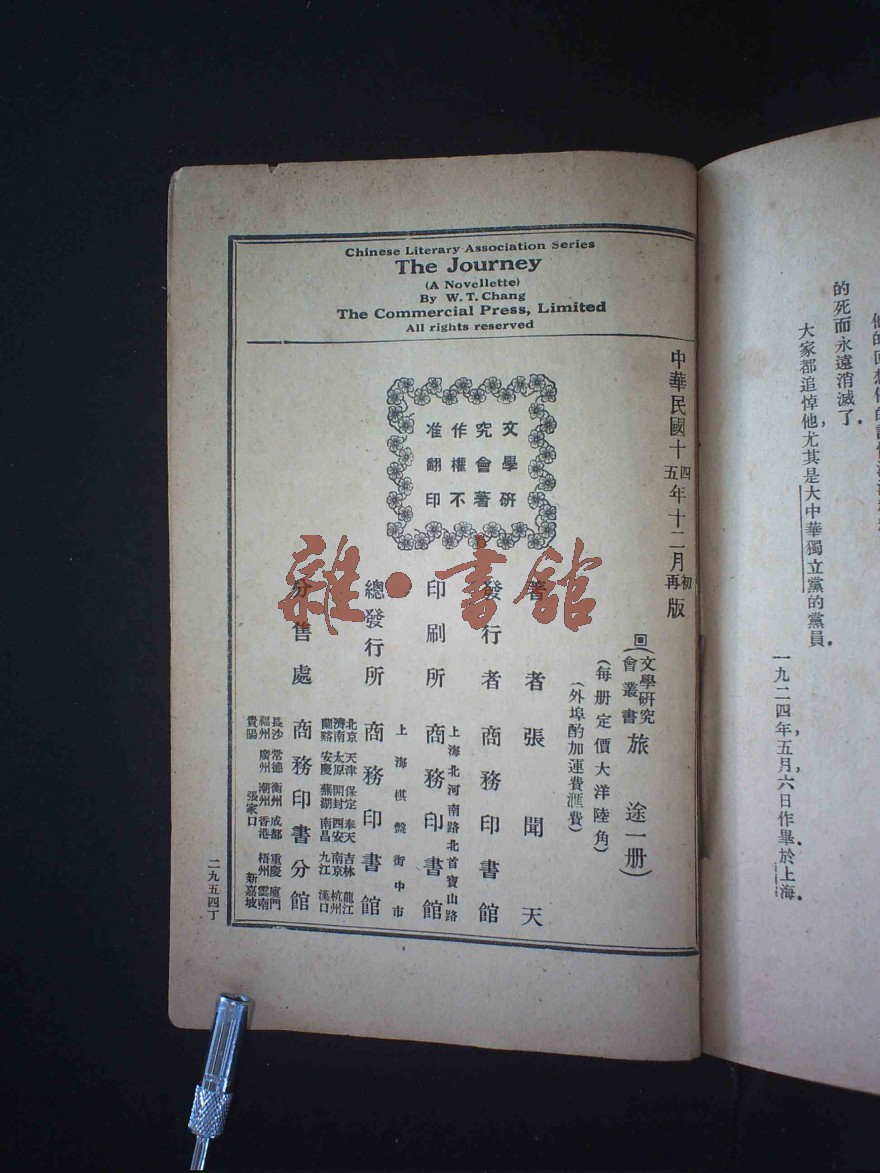 他的回想
的死而永遠消滅了．
大家都追悼他，尤其是大中華獨立黨的黨員．
一九二四年，五月，六日作畢於上海．
Chinese Literary Association Series
The Journey
(A Novellette)
By W. T. Chang
The Commercial Press, Limited
All rights reserved
中華民國十四年十二月初版
五 再
文學研
究會著
作權不
准翻印
(文學研究會叢書 旅途一册)
(每册定價大洋陸角)
(外埠酌加運費滙費)
著者 張聞天
發行者 商務印書館
上海北河南路北首寶山路
印刷所 商務印書館
上海棋盤街中市
總發行所 商務印書館
北京 天津 保定 奉天 吉林 龍江
濟南 太原 開封 西安 南京 杭州
蘭谿 安慶 蕪湖 南昌 九江 漢口
分售處 商務印書分館
長沙 常德 衡州 成都 重慶 廈門
福州 廣州 潮州 香港 梧州 雲南
貴陽 張家口 新嘉坡
二九五四丁
雜·書館